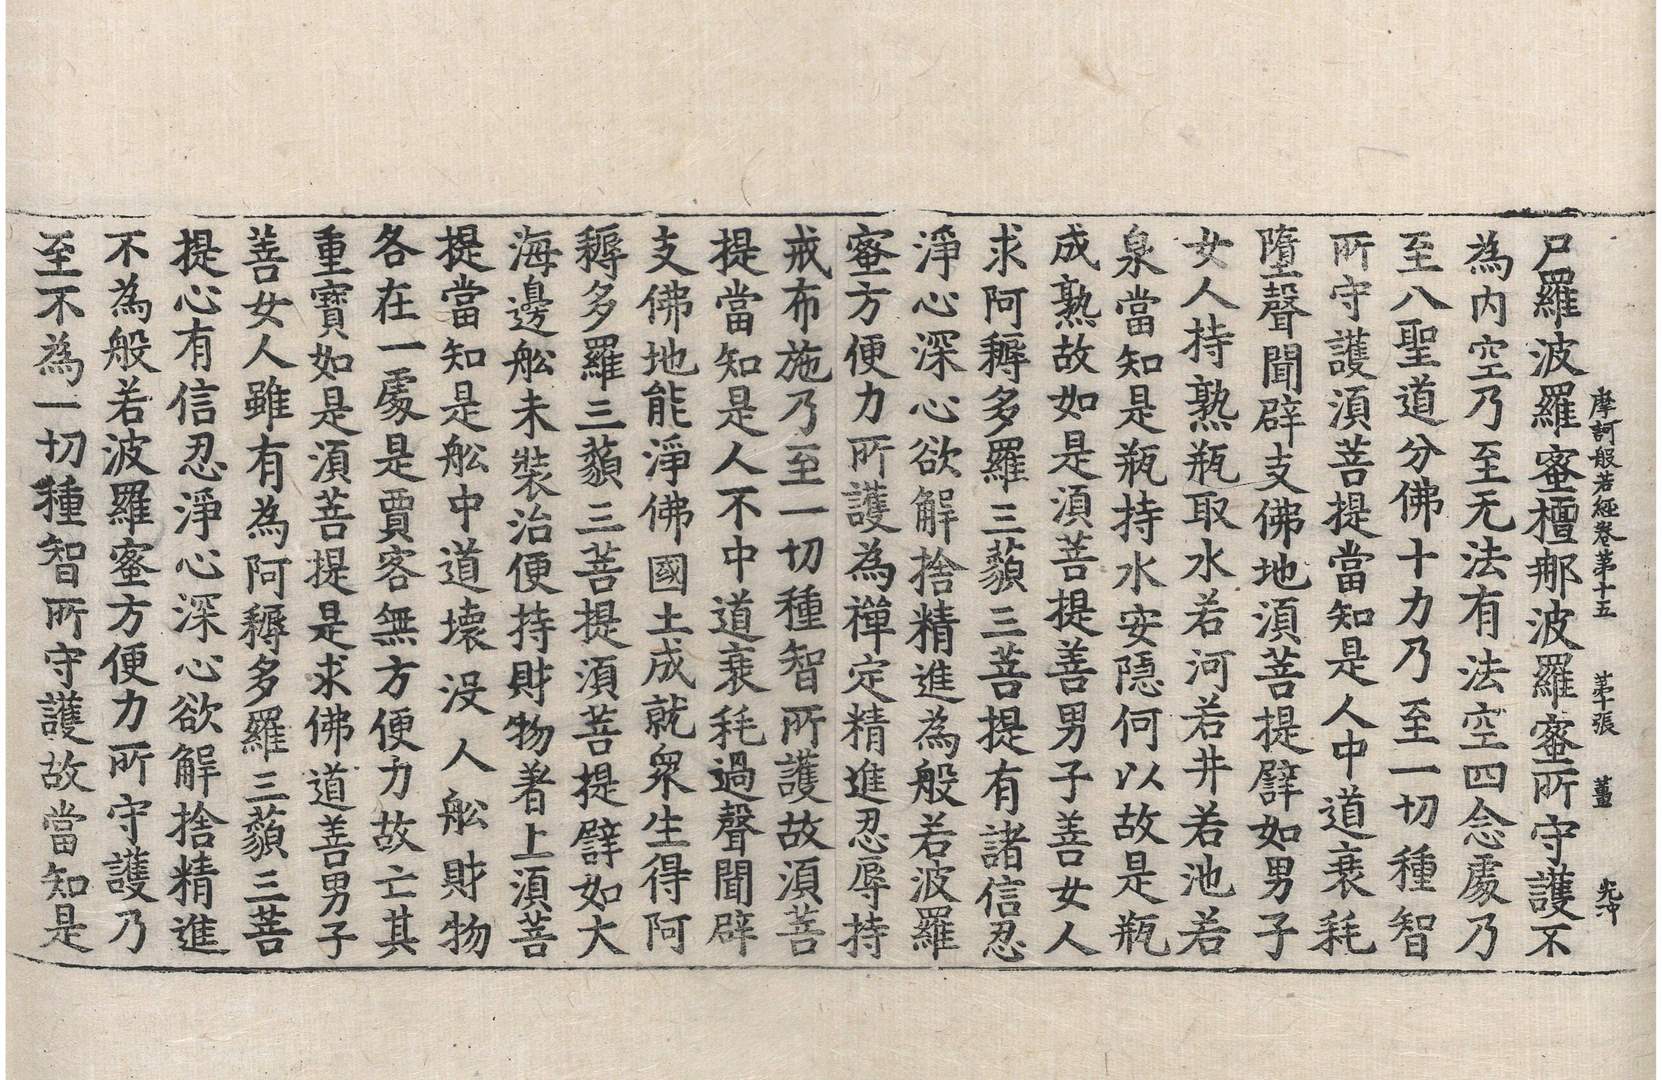 摩訶般若經卷第十五 第十張 薑
尸羅波羅蜜檀那波羅蜜所守護不
為内空乃至无法有法空四念處乃
至八聖道分佛十力乃至一切種智
所守護須菩提當知是人中道衰耗
墮聲聞辟支佛地須菩提譬如男子
女人持熟瓶取水若河若井若池若
泉當知是瓶持水安隱何以故是瓶
成熟故如是須菩提善男子善女人
求阿耨多羅三藐三菩提有諸信忍
淨心深心欲解捨精進為般若波羅
蜜方便力所護為禪定精進忍辱持
戒布施乃至一切種智所護故須菩
提當知是人不中道衰耗過聲聞辟
支佛地能淨佛國土成就衆生得阿
耨多羅三藐三菩提須菩提譬如大
海邊舩未裝治便持財物著上須菩
提當知是舩中道壞没人舩財物
各在一處是賈客無方便力故亡其
重寶如是須菩提是求佛道善男子
善女人雖有為阿耨多羅三藐三菩
提心有信忍淨心深心欲解捨精進
不為般若波羅蜜方便力所守護乃
至不為一切種智所守護故當知是